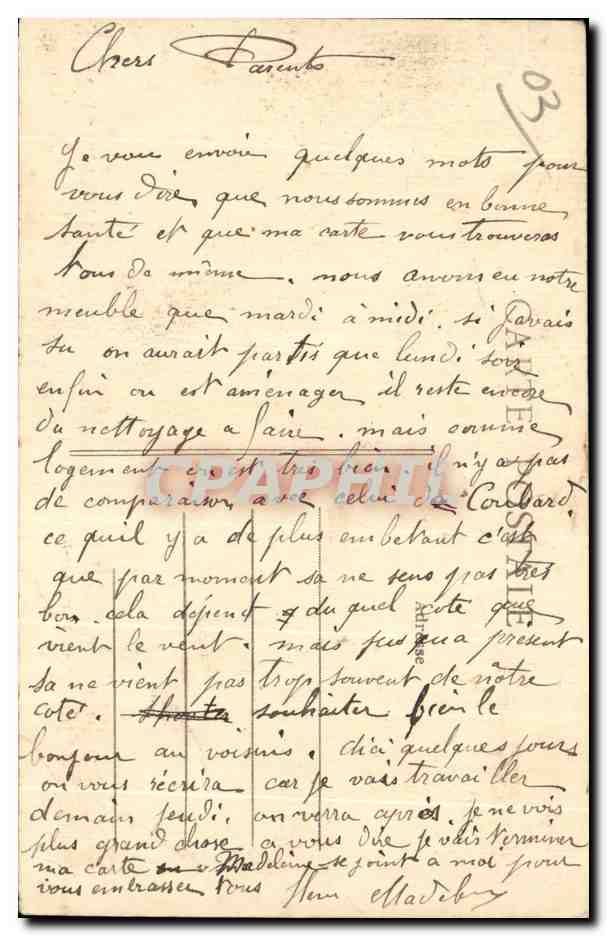 Chers Parents
03
Je vous envoie quelques mots pour
vous dire que nous sommes en bonne
santé et que ma carte vous trouveras
tous de même. nous avons eu notre
meuble que mardi à midi. si j'avais
su on aurait partis que lundi soir
enfin on est aménager il reste encore
du nettoyage a faire. mais comme
logement on est très bien. il n'y a pas
de comparaison avec celui de Coubard.
ce quil y a de plus embetant c'est
que par moment sa ne sens pas très
bon. cela dépend du quel coté que
vient le vent. mais jusqua present
sa ne vient pas trop souvent de nôtre
coté. souhaiter bien le
bonjour au voisins. d'ici quelques jours
on vous récrira car je vais travailler
demain jeudi. on verra après. je ne vois
plus grand chose a vous dire je vais terminer
ma carte Madeleine se joint a moi pour
vous embrasser tous
CARTE POSTALE
Adresse
CPAPHIL